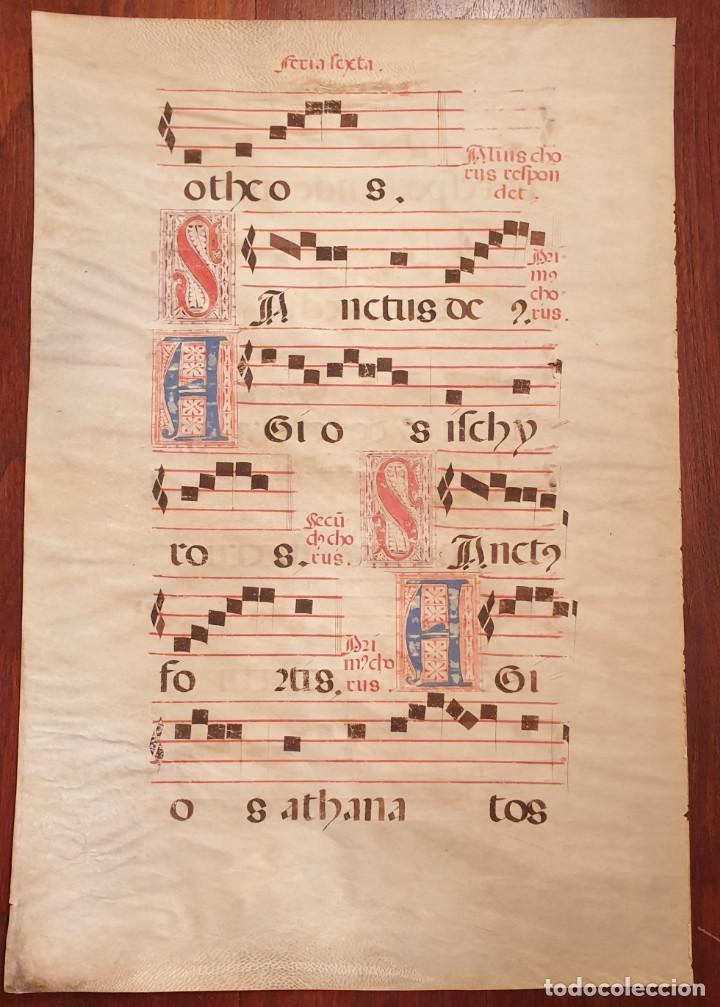 feria sexta.
otheo s. Alius cho
rus respon
det,
SA nctus de ꝰ. Pri
mꝰ
cho
rus.
AGi o s ischy
ro s. Secũ
dꝰ cho
rus. SAnctꝰ
fo rtis. Pri
mꝰ cho
rus. AGi
o s athana tos
todocoleccion